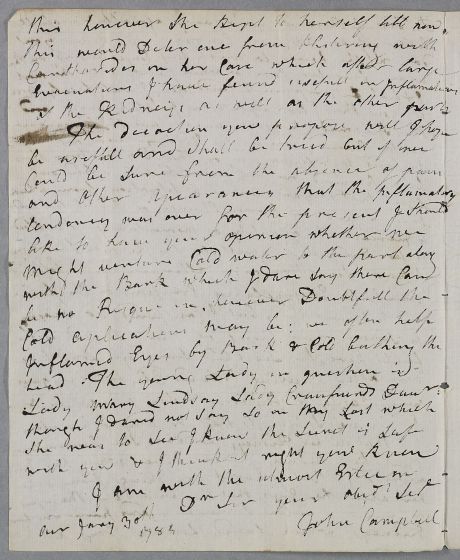 this however she kept to herself till now.
this would deter me from blistering with
Cantharides in her case which after large
Evacuations I have found usefull in Inflammations
of the Kidneys as well as the other parts
The Decoction you propose will I hope
be usefull and shall be tried but if we
could be sure from the absence of pain
and other appearances that the Inflamatory
tendency was over for the present I should
like to have your opinion whether we
might venture Cold water to the part along
with the Bark which I dare say there can
be no Risque in, however Doubtfull the
Cold applications may be; we often help
Inflamed Eyes by Bark & Cold bathing the
head. The young Lady in question is
Lady Mary Lindsay Lady Crawfurds Daur:
though I dared not say so in my Last which
she was to see I know the secret is safe
with you & I think it right you know
I am with the utmost Esteem
Dr Sir your obedt Sert
John Campbell
Jany 30th